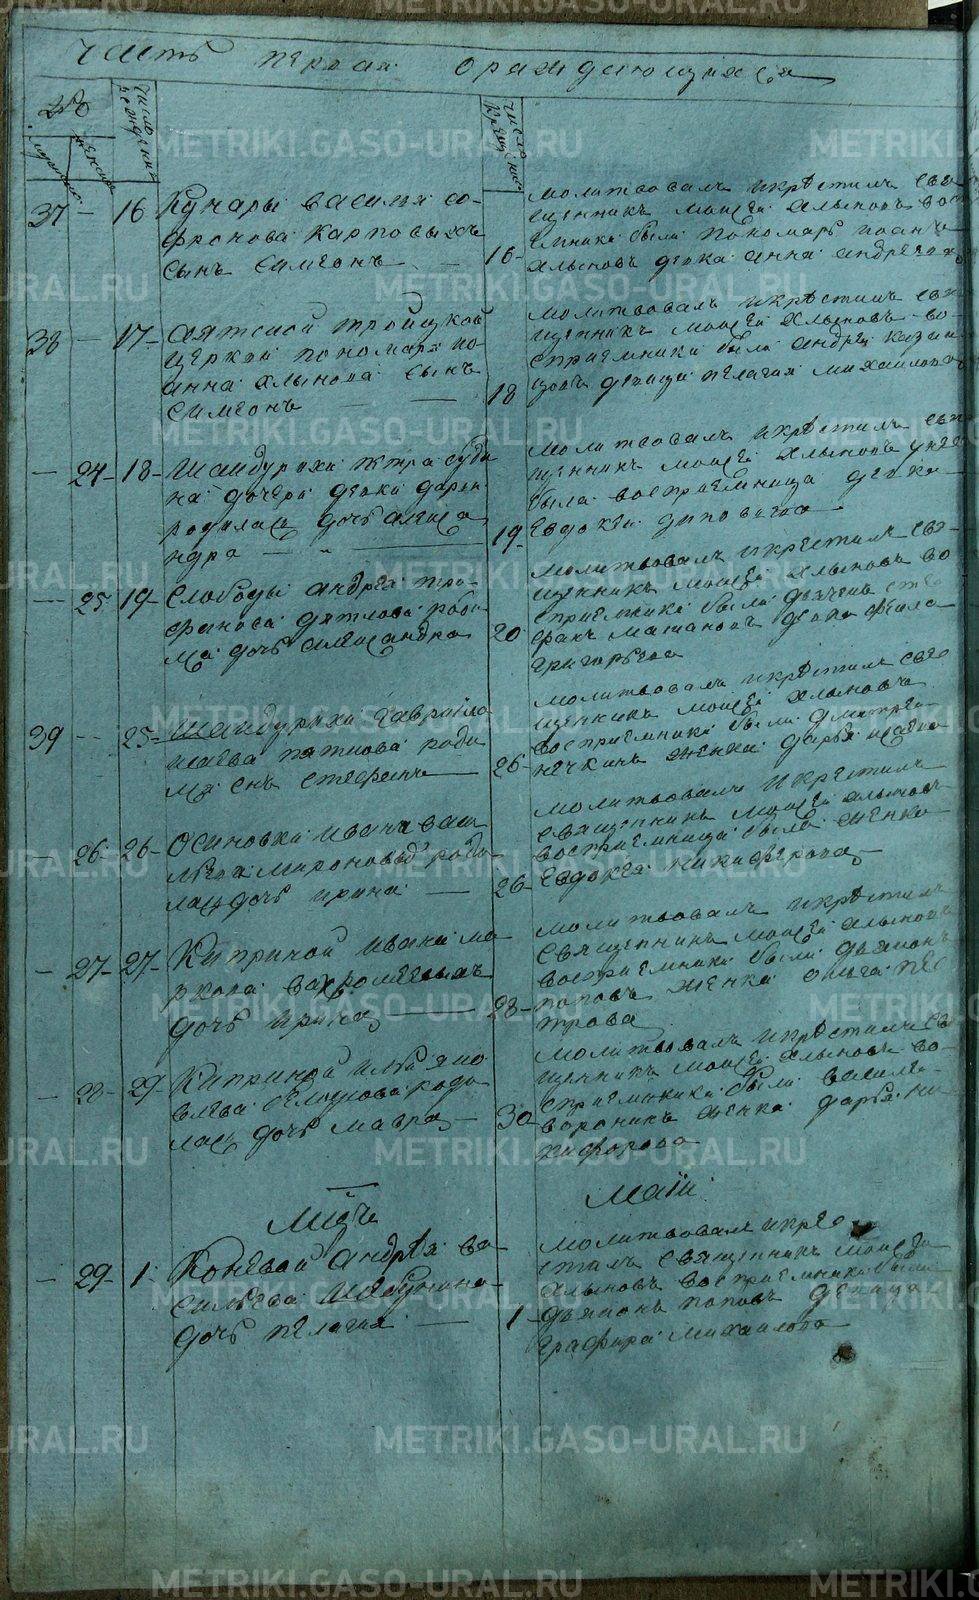 часть первая ораждающихся
№
мужеска
женска
число рождения
число крещения
37 — 16 Кунары василiя со-
фронова Карповыхъ
сынъ Симеонъ
16 молитвовалъ икрѣстилъ свя
щенникъ моисей хлыновъ вос
емники были пономарь иоанъ
хлыновъ девка анна андреева
38 — 17 аятской троицкой
церкви пономаря ио-
анна хлынова сынъ
Симеонъ
18 молитвовалъ икрѣстилъ свя
щенникъ моисей хлыновъ во-
спрiемники были андрей казан
цовъ девица пелагия михаилова
— 24 18 Шайдурихи петра суди
на дочери девки дарьи
родилась дочь алекса
ндра
19 молитвовалъ икрѣстилъ свя
щенникъ моисей хлыновъ у нея
была воспрiемница девка
Евдокея зиновьева
— 25 19 Слободы андрея тро-
фимова дятлова роди
лась дочь александра
20 молитвовалъ икрестилъ свя
щенникъ моисей хлыновъ во
спрiемники были дьячекъ сте
фанъ девка фекла
григорьева
39 — 25 Шайдурихи гаврiила
исаева пяткова роди
лся снъ стефанъ
26 молитвовалъ икрѣстилъ свя
щенникъ моисей хлыновъ
воспрiемники были дмитрей
женка дарья
— 26 26 Осиновки ивана васи
льева мироновыхъ роди
лась дочь ирина
26 молитвовалъ икрестилъ
священникъ моисей хлыновъ
воспрiемница была женка
Евдокея никифорова
— 27 27 Киприной ивана ма
ркова вахромеевыхъ
дочь ирина
28 молитвовалъ икрѣстилъ
священникъ моисей хлыновъ
воспрiемники были дьяконъ
поповъ женка ольга пе
трова
— 28 29 Киприной ильи яко
влева белоусова роди
лась дочь мавра
30 молитвовалъ икрѣстилъ свя
щенникъ моисей хлыновъ во-
спрiемники были василей
воронинъ женка дарья ни
кифорова
Мсцъ
маiй
— 29 1 Коневой андрѣя ва
сильева Шабунина
дочь пелагия
1 молитвовалъ икре
стилъ священникъ моисей
хлыновъ воспрiемники были
дьяконъ поповъ девица
графира михаилова
METRIKI.GASO-URAL.RU